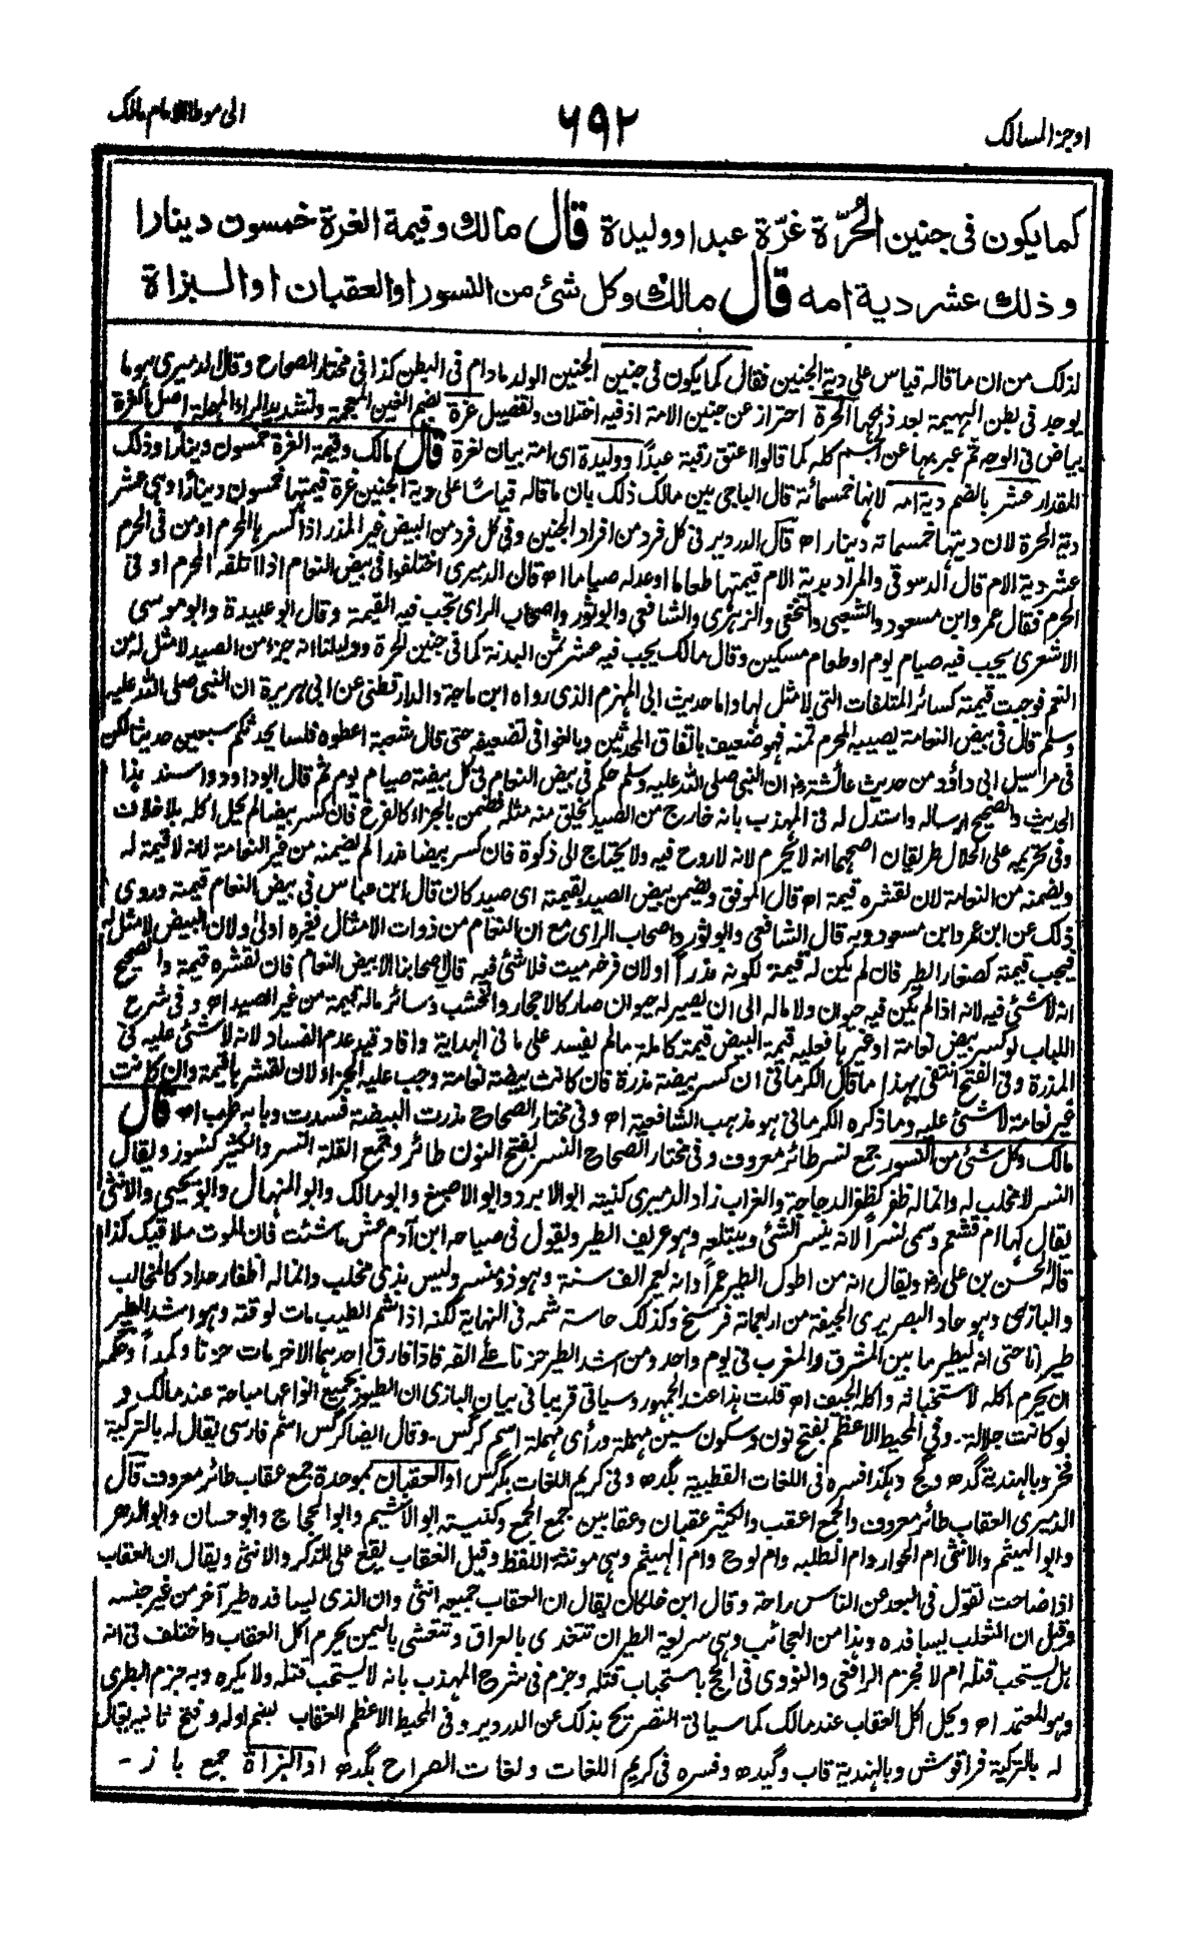 اوجز المسالك
٦٩٢
الى موطا الامام مالك
كما يكون فى جنين الحُرّة غرّة عبد او وليدة قال مالك وقيمة الغرة خمسون دينارا
وذلك عشر دية امه قال مالك وكل شئ من النسور او العقبان او البزاة
لذلك من ان ما قاله قياس على دية الجنين فقال كما يكون فى جنين الجنين الولد مادام فى البطن كذا فى مختار الصحاح وقال الدميرى هو ما
يوجد فى بطن البهيمة بعد ذبحها الحرة احتراز عن جنين الامة اذ فيه اختلاف وتفصيل غرة بضم الغين المعجمة وتشديد الراء المهملة اصل الغرة
بياض فى الوجه ثم عبر بها عن الجسم كله كما قالوا اعتق رقبة عبدًا ووليدة اى امة بيان لغرة قال مالك وقيمة الغرة خمسون دينارًا وذلك
المقدار عشر بالضم دية امه لانها خمسمائة قال الباجى بين مالك ذلك بان ما قاله قياسًا على دية الجنين غرة قيمتها خمسون دينارًا وهى عشر
دية الحرة لان ديتها خمسمائة دينار اه قال الدردير فى كل فرد من افراد الجنين وفى كل فرد من البيض غير المذر اذا كسرها المحرم او من فى الحرم
عشر دية الام قال الدسوقى والمراد بدية الام قيمتها طعاما او عدله صياما اه قال الدميرى اختلفوا فى بيض النعام اذا اتلفه المحرم او فى
الحرم فقال عمر وابن مسعود والشعبى والنخعى والزهرى والشافعى وابو ثور واصحاب الراى تجب فيه القيمة وقال ابو عبيدة وابو موسى
الاشعرى يجب فيه صيام يوم او طعام مسكين وقال مالك يجب فيه عشر ثمن البدنة كما فى جنين الحرة ودليلنا انه جزء من الصيد لا مثل له من
النعم فوجبت قيمته كسائر المتلفات التى لا مثل لها واما حديث ابى المهزم الذى رواه ابن ماجة والدارقطنى عن ابى هريرة ان النبى صلى الله عليه
وسلم قال فى بيض النعامة يصيبه المحرم ثمنه فهو ضعيف باتفاق المحدثين وبالغوا فى تضعيفه حتى قال شعبة اعطوه فلسا يحدثكم سبعين حديثا لكن
فى مراسيل ابى داؤد من حديث عائشة رض ان النبى صلى الله عليه وسلم حكم فى بيض النعام فى كل بيضة صيام يوم ثم قال ابو داود واسند هذا
الحديث والصحيح ارساله واستدل له فى المهذب بانه خارج من الصيد يخلق منه مثله فضمن بالجزاء كالفرخ فان كسر بيضا لم يحل اكله بلا خلاف
وفى تحريمه على الحلال طريقان اصحهما انه لا يحرم لانه لا روح فيه ولا يحتاج الى ذكوة فان كسر بيضا مذرا لم يضمنه من غير النعامة لانه لا قيمة له
ويضمنه من النعامة لان لقشره قيمة اه قال الموفق ويضمن بيض الصيد بقيمته اى صيد كان قال ابن عباس فى بيض النعام قيمته وروى
ذلك عن ابن عمر وابن مسعود وبه قال الشافعى وابو ثور واصحاب الراى مع ان النعام من ذوات الامثال فغيره اولىٰ ولان البيض لا مثل له
فيجب قيمته كصغار الطير فان لم يكن له قيمة لكونه مذرًا او لان فرخه ميت فلا شئ فيه قال اصحابنا الا بيض النعام فان لقشره قيمة والصحيح
انه لا شئ فيه لانه اذا لم يكن فيه حيوان ولا ماله الى ان يصير له حيوان صار كالاحجار والخشب وسائر ماله قيمة من غير الصيد اه وفى شرح
اللباب لو كسر بيض نعامة او غيرها فعليه قيمة البيض قيمة كاملة مالم يفسد على ما فى الهداية وافاد قيد عدم الفساد لانه لا شئ عليه فى
المذرة وفى الفتح انتفى بهذا ما قال الكرمانى ان كسر بيضة مذرة فان كانت بيضة نعامة وجب عليه الجزاء لان لقشرها قيمة وان كانت
غير نعامة لا شئ عليه وما ذكره الكرمانى هو مذهب الشافعية اه وفى مختار الصحاح مذرت البيضة فسدت وبابه طرب اه قال
مالك وكل شئ من النسور جمع لنسر طائر معروف وفى مختار الصحاح النسر بفتح النون طائر وجمع القلة انسر والكثير كنسور ويقال
النسر لا مخلب له وانما له ظفر كظفر الدجاجة والغراب زاد الدميرى كنيته ابو الابرد وابو الاصبغ وابو مالك وابو المنهال وابو يحيى والانثى
يقال لها ام قشعم وسمى نسرًا لانه ينسر الشئ ويبتلعه وهو عريف الطير ويقول فى صياحه ابن آدم عش ما شئت فان الموت ملاقيك كذا
قاله الحسن بن على رض ويقال انه من اطول الطير عمرًا وانه يعمر الف سنة وهو ذو منسر وليس بذى مخلب وانما له اظفار حداد كالمخالب
والبازى وهو حاد البصر يرى الجيفة من اربعمائة فرسخ وكذلك حاسة شمه فى النهاية لكنه اذا شم الطيب مات لوقته وهو اشد الطير
طيرانا حتى انه ليطير ما بين المشرق والمغرب فى يوم واحد ومن اشد الطير حزنا على الفه فاذا فارق احدهما الآخر مات حزنا وكمدًا وحكمه
ان يحرم اكله لاستخباثه واكله الجيف اه قلت هذا عند الجمهور وسياتى قريبا فى بيان البازى ان الطيور بجميع انواعها مباحة عند مالك و
لو كانت جلالة - وفى المحيط الاعظم بفتح نون وسكون سين مهملة ورأى مهملة اسم كرگس - وقال ايضا كرگس اسم فارسى يقال له بالتركية
وبالهندية گدھ وهكذا فسره فى اللغات القطبية بگدھ وفى كريم اللغات بكرگس او العقبان بموحدة جمع عقاب طائر معروف قال
الدميرى العقاب طائر معروف والجمع اعقب والكثير عقبان وعقابين جمع الجمع وكنيته ابو الاشيم وابو الحجاج وابو حسان وابو الدهر
وابو الهيثم والانثى ام الحوار وام الطلبة وام لوح وام الهيثم وهى مونثة اللفظ وقيل العقاب يقع على الذكر والانثى ويقال ان العقاب
اذا صاحت تقول فى البعد عن الناس راحة وقال ابن خلكان يقال ان العقاب جميعه انثى وان الذى يسافده طير آخر من غير جنسه
وقيل ان الثعلب يسافده وهذا من العجائب وهى سريعة الطيران تتغدى بالعراق وتتعشى باليمن يحرم اكل العقاب واختلف فى انه
هل يستحب قتله ام لا فجزم الرافعى والنووى فى الحج باستحباب قتله وجزم فى شرح المهذب بانه لا يستحب قتله ولا يكره وبه جزم الطبرى
وهو المعتمد اه ويحل اكل العقاب عند مالك كما سياتى التصريح بذلك عن الدردير وفى المحيط الاعظم العقاب بضم اوله وفتح ثانيه يقال
له بالتركية قراقوش وبالهندية وفسره فى كريم اللغات ولغات الصراح بگدھ او البزاة جمع باز -